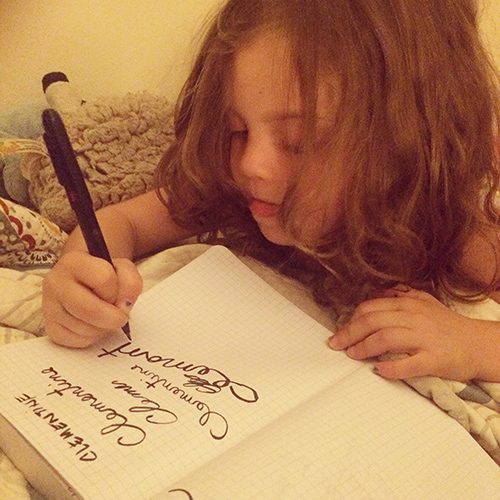 CLEMENTINE
Clementine
Cleme
Clementine
Clemont